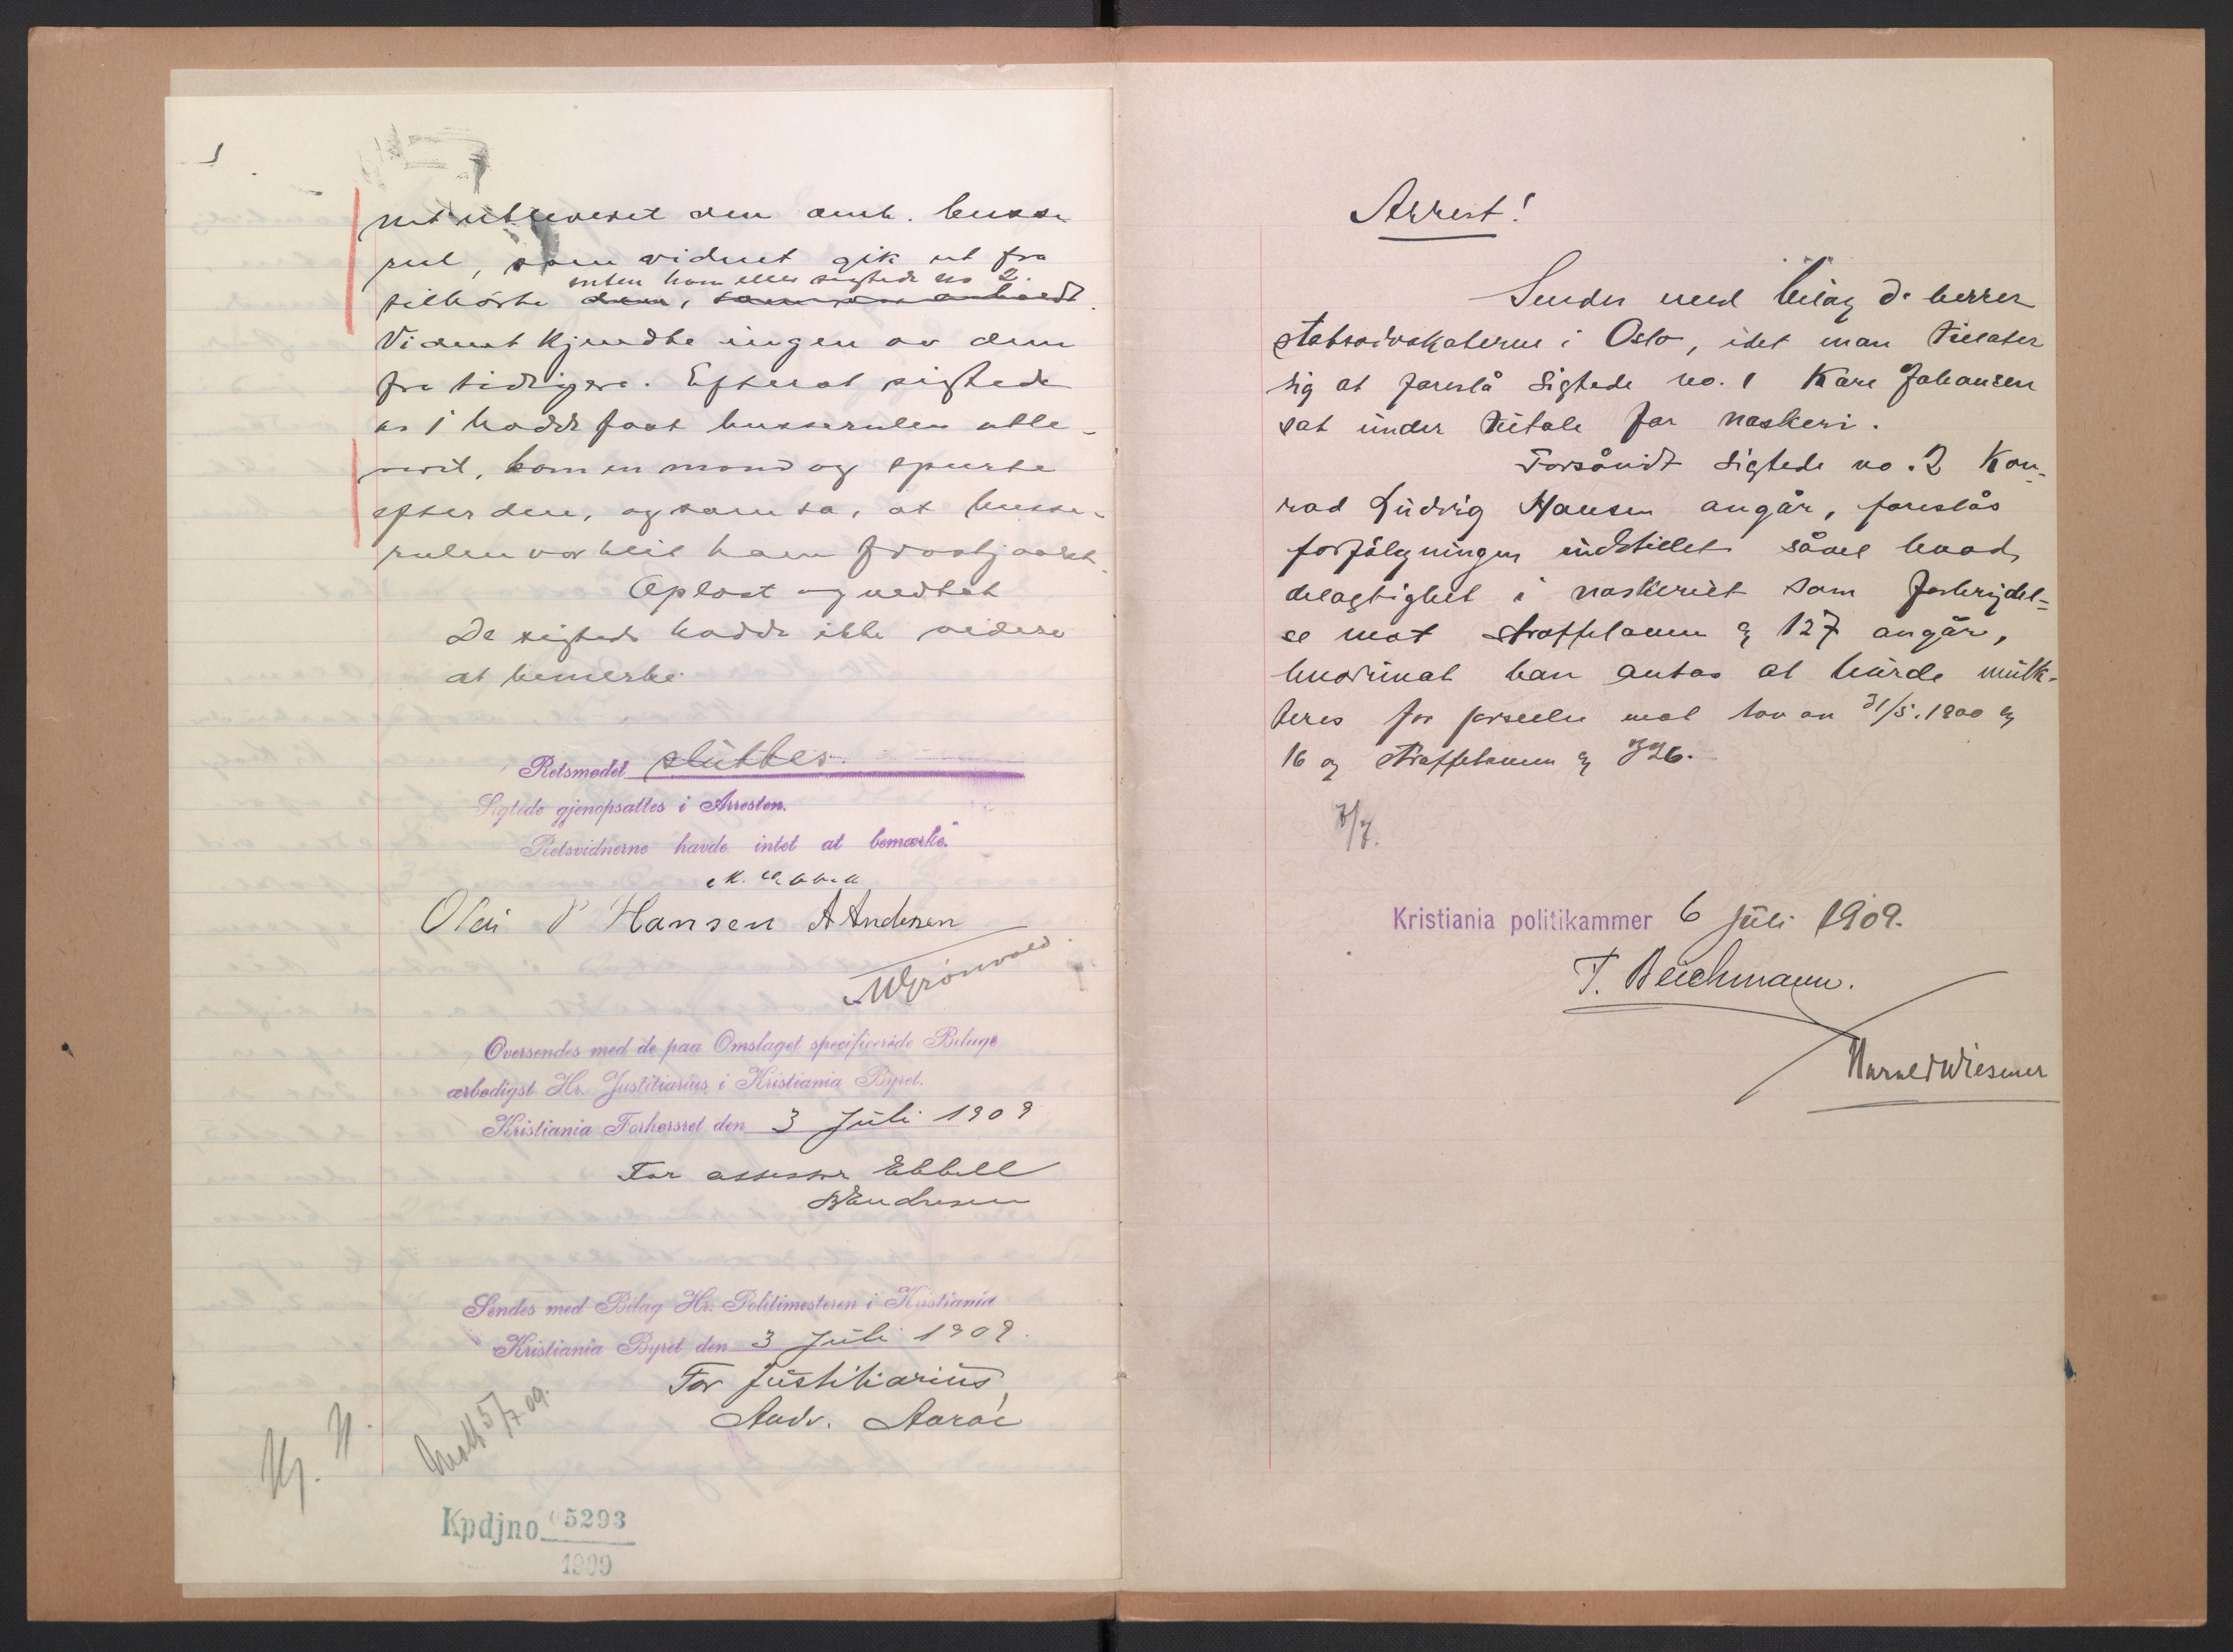 net utleveret den omh. busse
rul, som vidnet gik ut fra
enten ham eller sigtede no 2.
tilhørte dem, som
Vidnet kjendte ingen av dem
fra tidligere. Efterat sigtede
no 1 hadde faat busserulen utle-
veret, kom en mand og spurte
efter den, og som sa, at busse-
rulen var blit ham frastjaalet.
Oplæst og vedtat
De sigtede hadde ikke videre
at bemerke.
Retsmødet sluttes.
Sigtede gjenopsattes i Arresten.
Retsvidnerne havde intet at bemærke.
M. Ebbell
Olai P Hansen A Andersen
M Grönvold
Oversendes med de paa Omslaget specificerede Bilage
ærbødigst Hr. Justitiarius i Kristiania Byret.
Kristiania Forhørsret den 3 Juli 1909
For assessor Ebbell
B Endresen
Sendes med Bilag Hr. Politimesteren i Kristiania
Kristiania Byret den 3 Juli 1909.
For Justitiarius
Andr. Aaröe
Mott 5/7.09.
Kpdjno 05293
1909
Arrest!
Sendes med bilag de herrer
statsadvokaterne i Oslo, idet man tillater
sig at foreslå sigtede no. 1 Kåre Johansen
sat under tiltale for naskeri.
Forsåvidt sigtede no. 2 Kon-
rad Ludvig Hansen angår, foreslås
forfölgningen indstillet såvel hvad
delagtighet i naskeriet som forbrydel-
se mot straffeloven § 127 angår,
hvorimot han antas at burde mulk-
teres for forseelse mot lov av 31/5.1900 §
16 og straffeloven § 326.
7/7.
Kristiania politikammer 6 juli 1909.
T. Beichmann.
Harald Wiesener